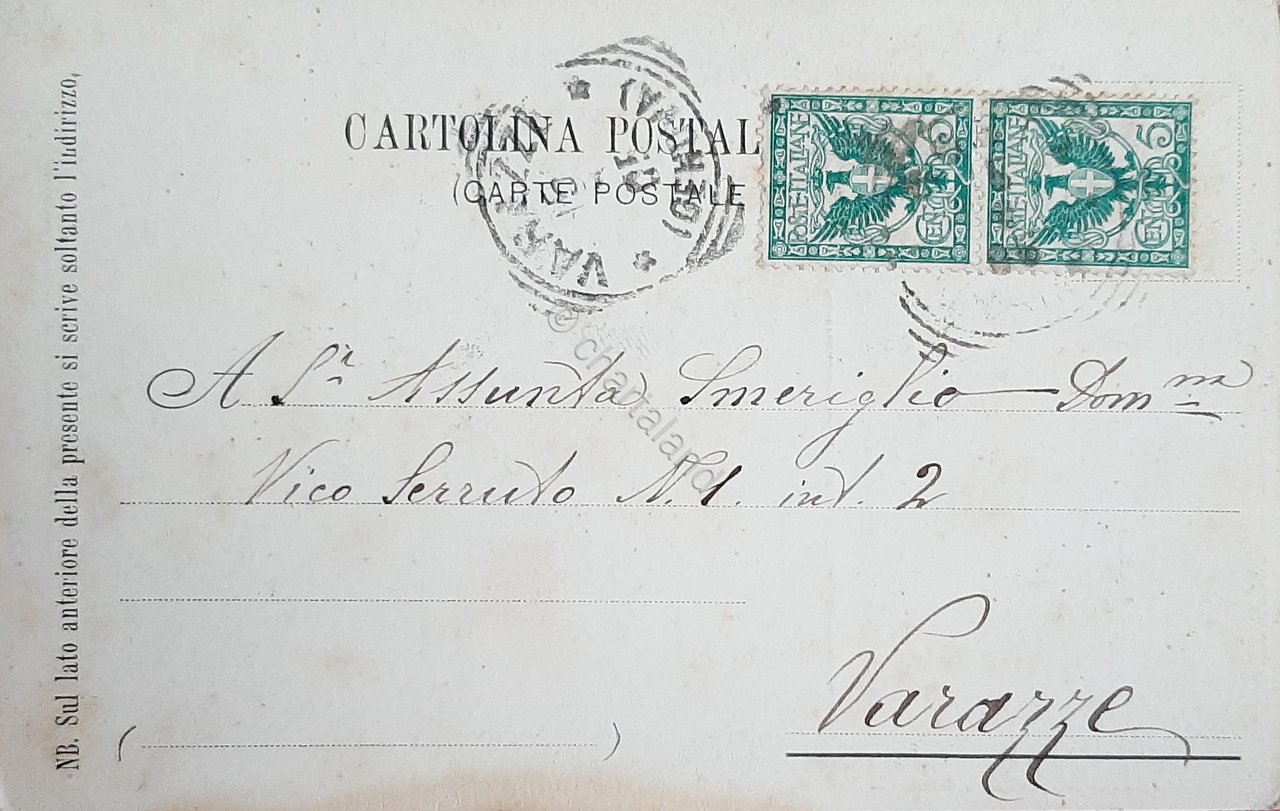 CARTOLINA POSTAL
(CARTE POSTALE
POSTE ITALIANE CENT 5
POSTE ITALIANE CENT 5
VARAZZE
(GENOVA)
NB. Sul lato anteriore della presente si scrive soltanto l'indirizzo,
A Sra Assunta Smeriglio Domna
Vico Serruto N. 1. int. 2
Varazze
( )
© chartaland